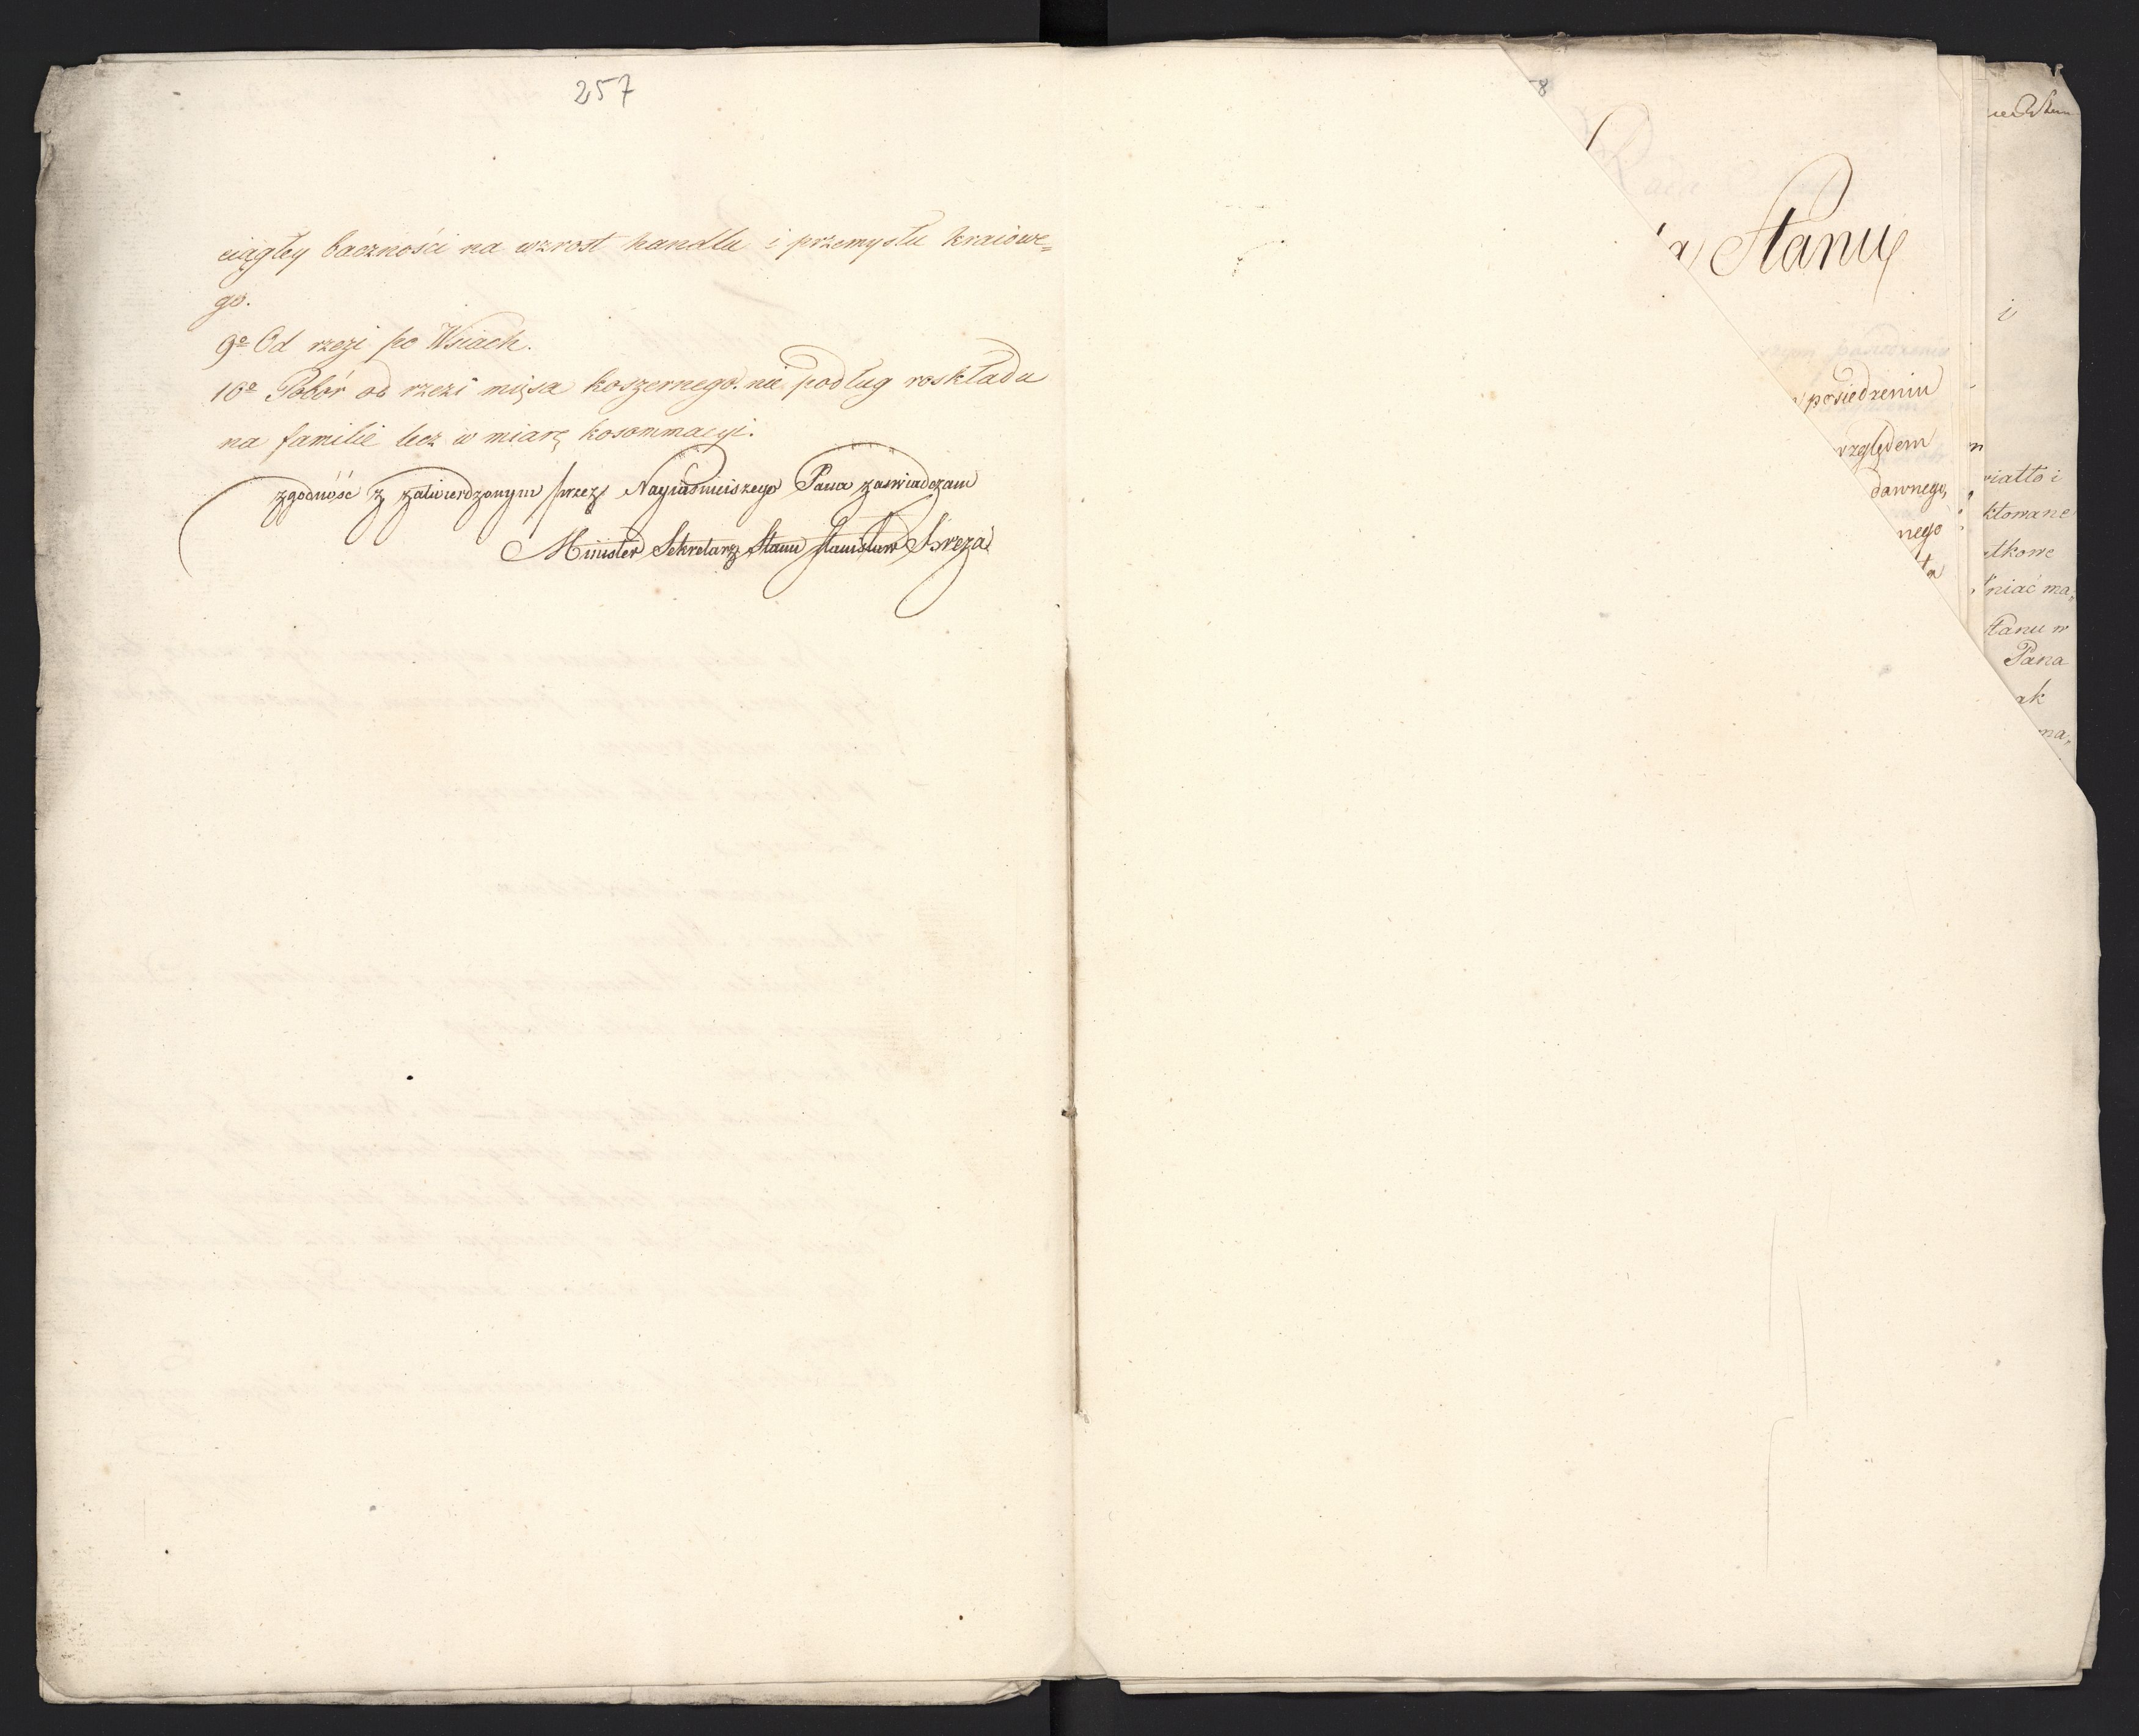 257
ciągłey baczności na wzrost handlu i przemysłu kraiowe=
go.
9º Od rzezi po Wsiach.
10º Pobór od rzezi mięsa koszernego nie podług roskładu
na familie lecz w miarę kosommacyi.
Zgodność z zatwierdzonym przez Nayiaśnieiszego Pana zaświadczam
Minister Sekretarz Stanu Stanisław Breza
8
Stanu
posiedzeniu
względem
dawnego,
nego
ta
i
iatło i
ktowane
tkowe
niać ma,
Stanu w
Pana
ak
ma,